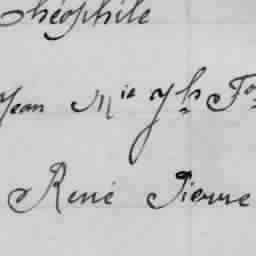 Théophile
Jean Mie Jh Fois
René Pierre